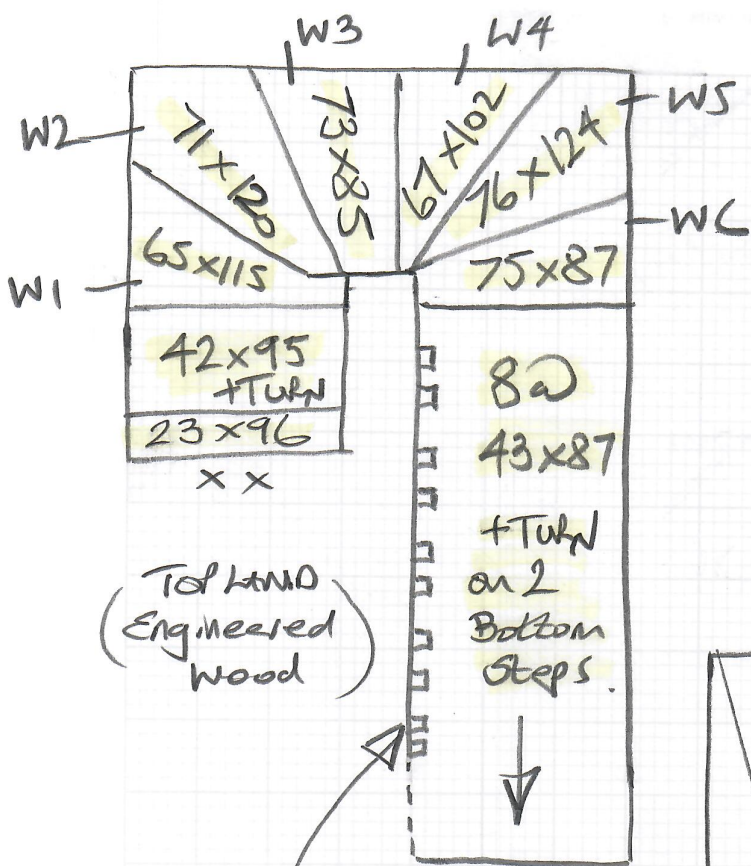 W3
W4
W2
W5
71x120
73x85
67x102
76x124
W1
65x115
75x87
WC
42x95
+TURN
23x96
x x
8@
43x87
+TURN
on 2
Bottom
Steps.
(Top LAND
Engineered
Wood)